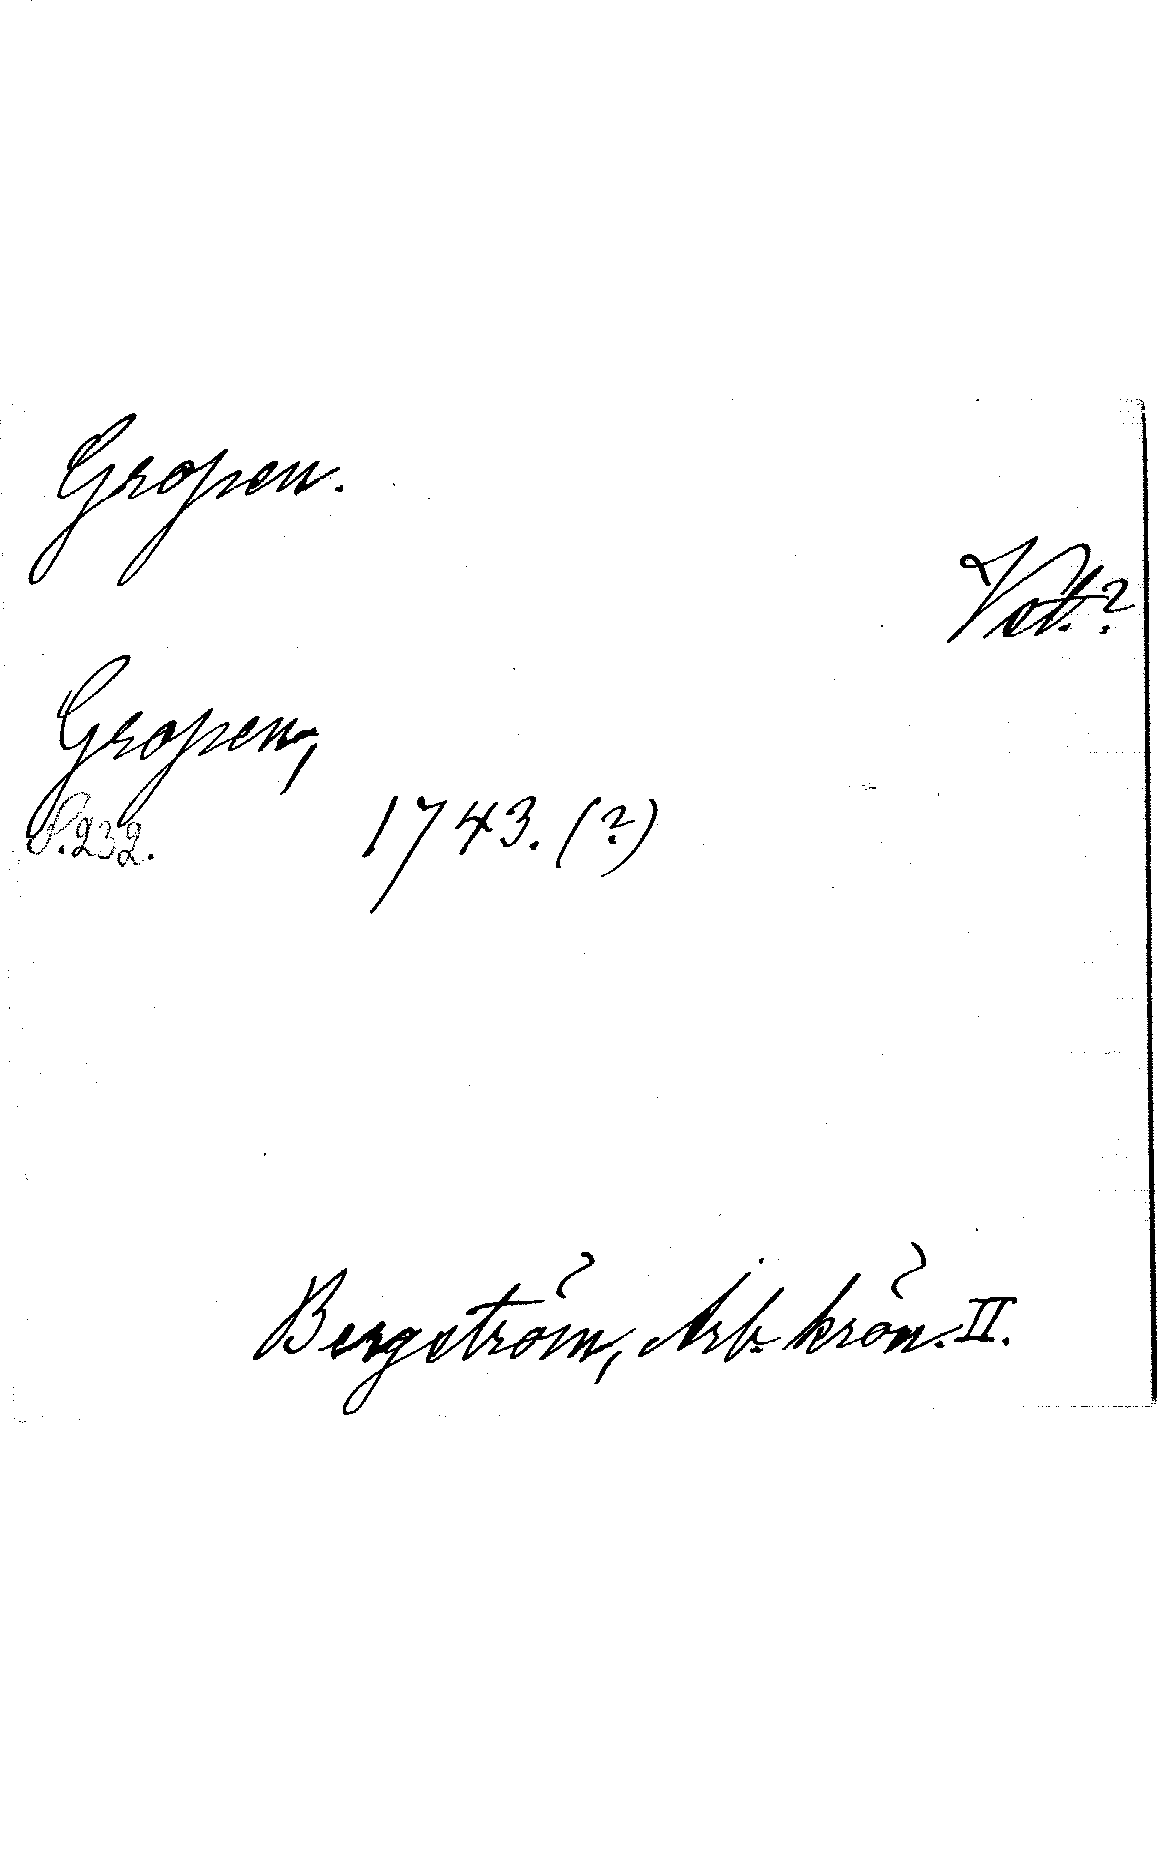 Gropen.
Vet.?
Gropen,
S. 232.
1743. (?)
Bergström, Arb. krön. II.